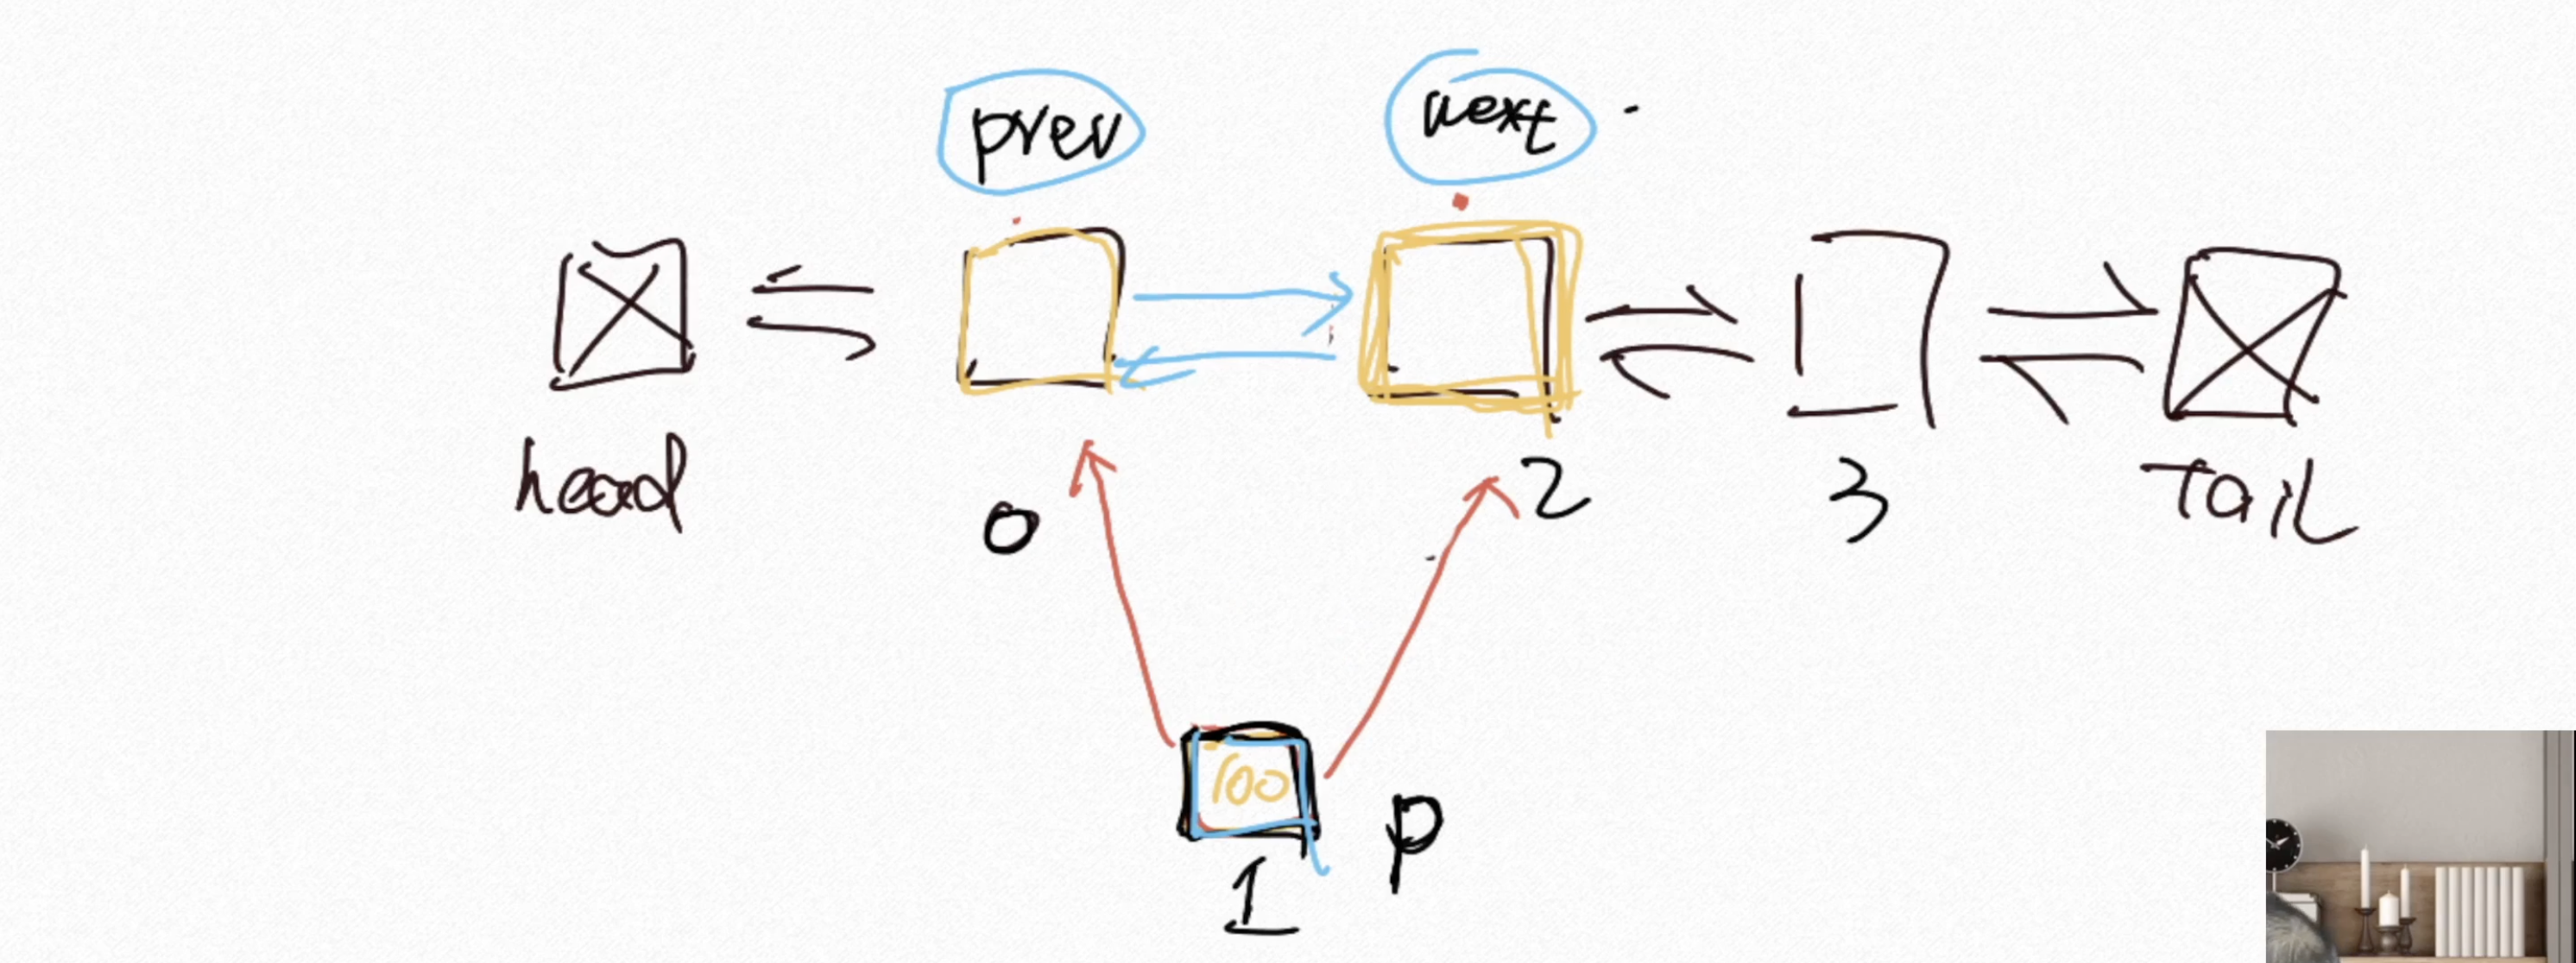 prev next
head 0 2 3 Tail
100
p
1